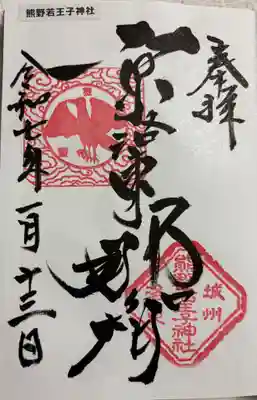 熊野若王子神社
奉拝
京洛東
城州
熊野若王子神社
令和七年一月十三日